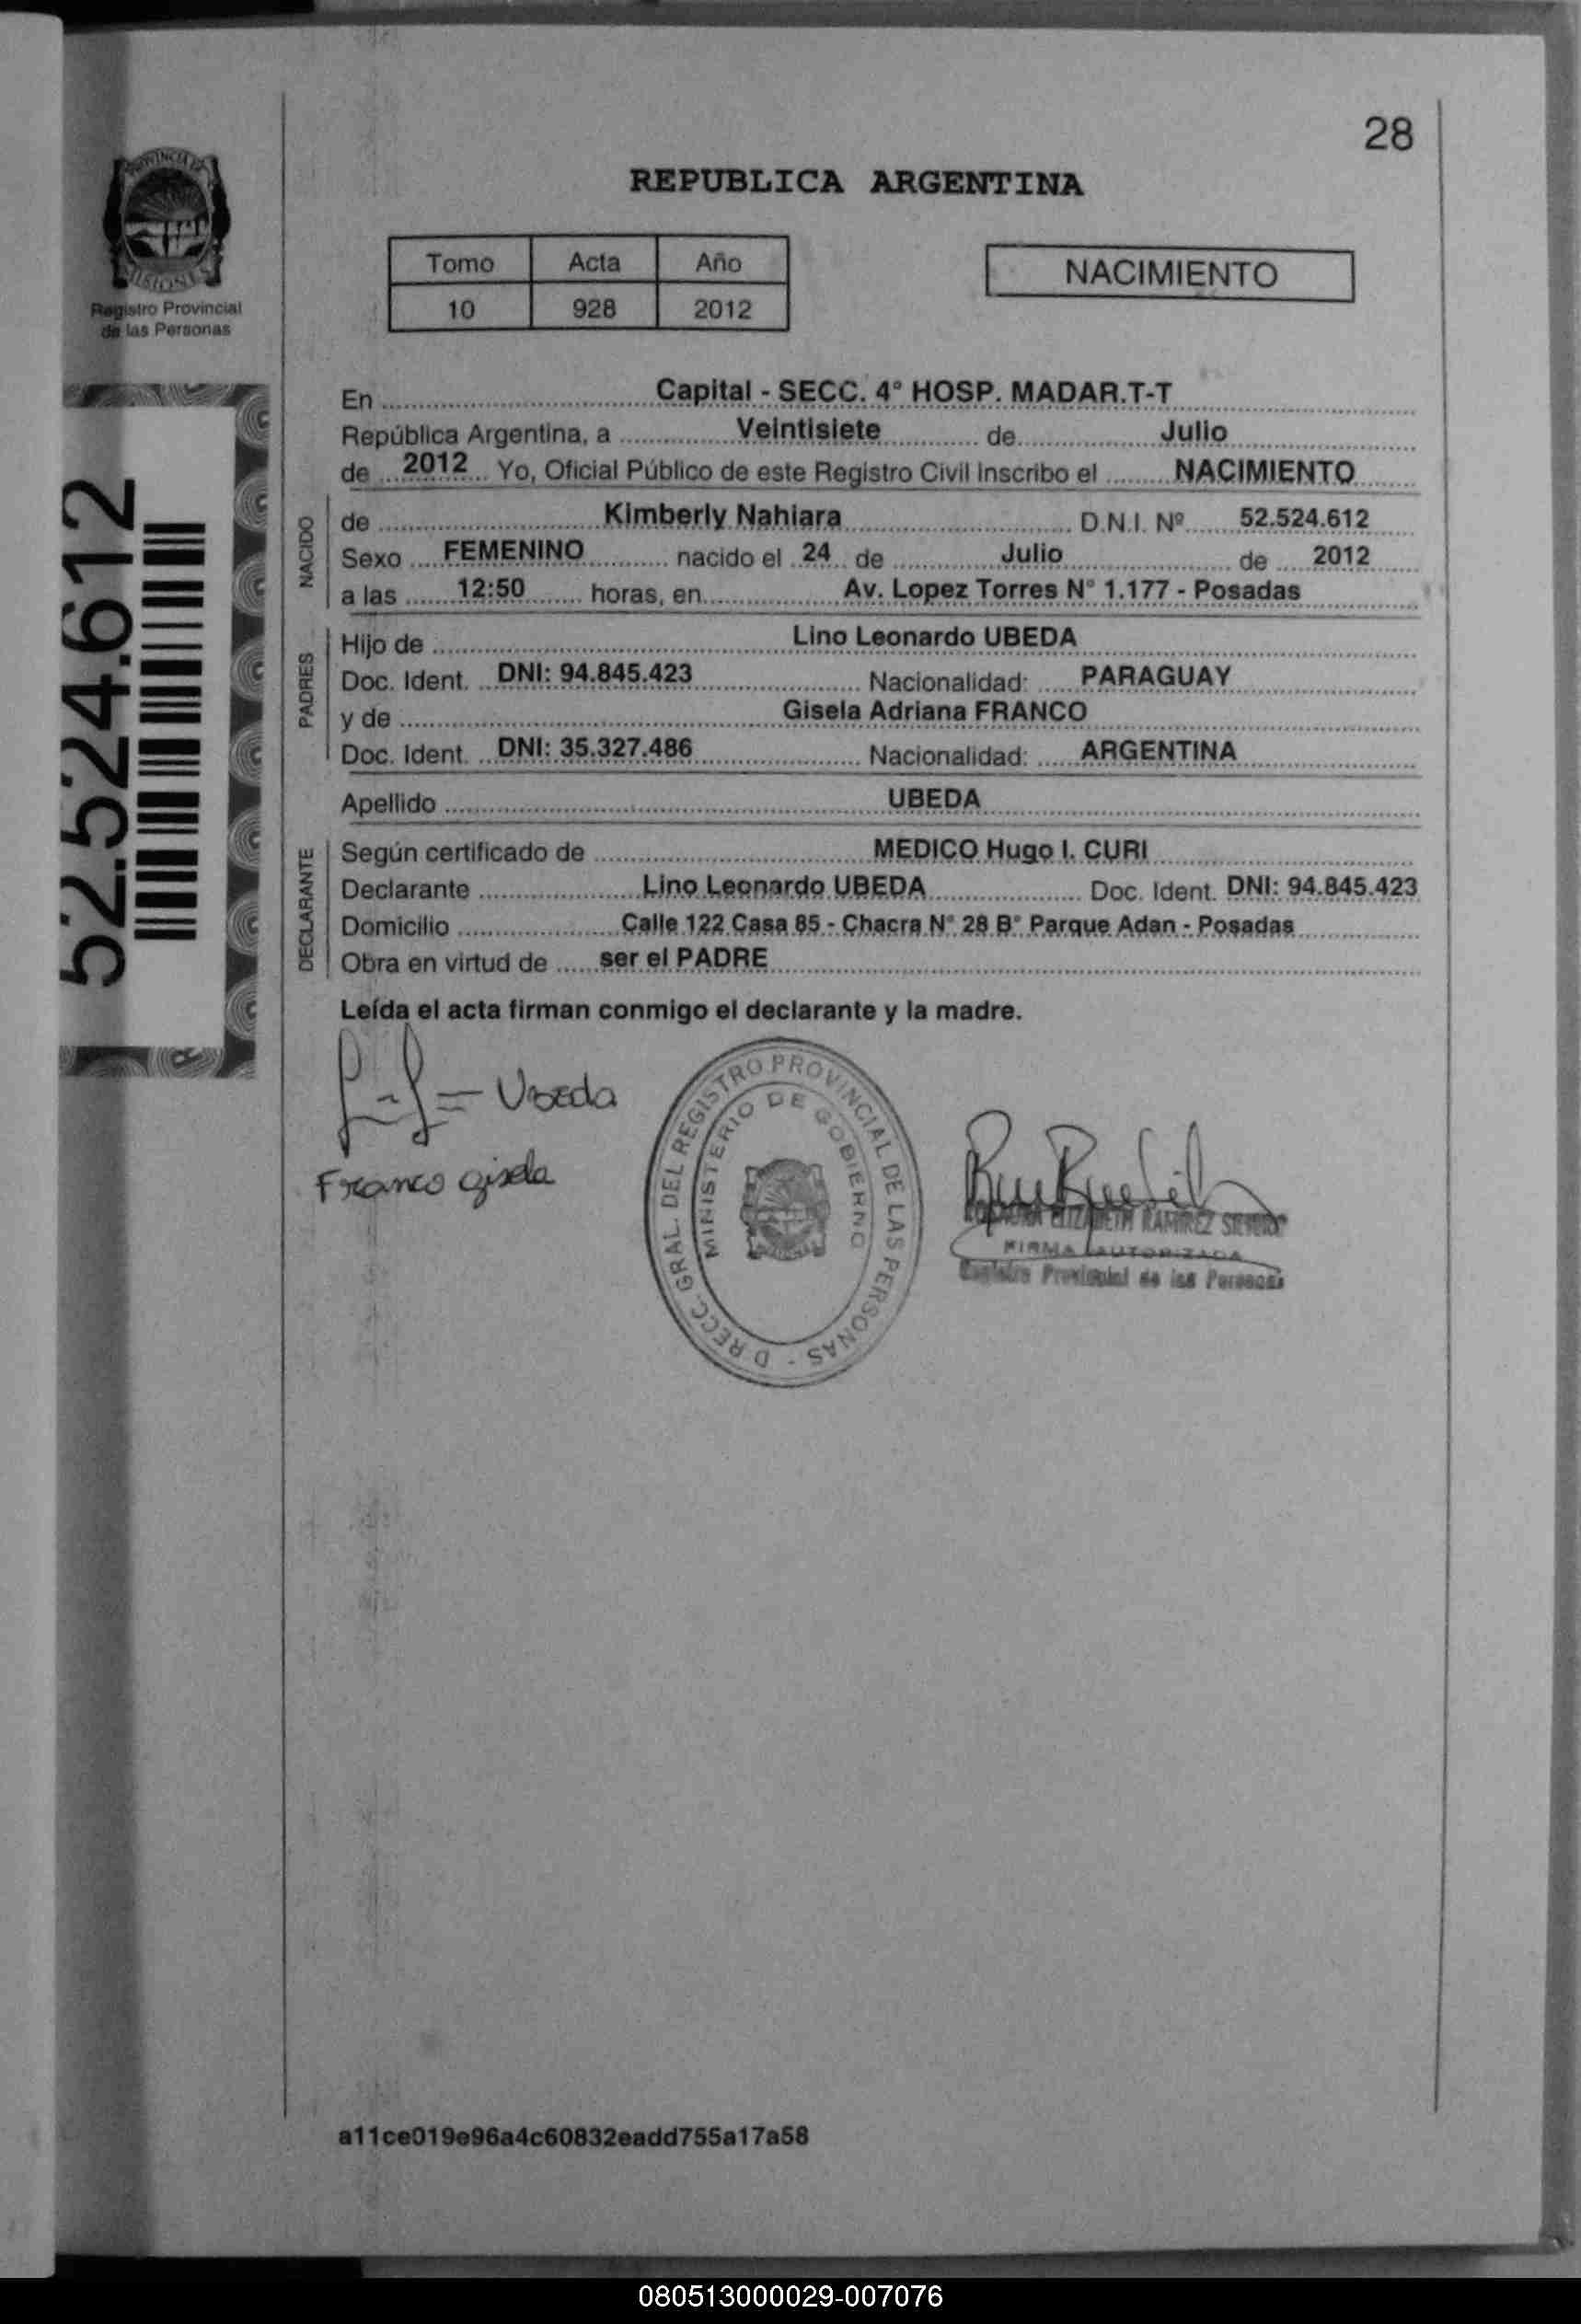 28
PROVINCIA DE
MISIONES
Registro Provincial
de las Personas
REPUBLICA ARGENTINA
Tomo Acta Año
10 928 2012
NACIMIENTO
52.524.612
En Capital - SECC. 4° HOSP. MADAR.T-T
República Argentina, a Veintisiete de Julio
de 2012 Yo, Oficial Público de este Registro Civil Inscribo el NACIMIENTO
NACIDO
de Kimberly Nahiara D.N.I. Nº 52.524.612
Sexo FEMENINO nacido el 24 de Julio de 2012
a las 12:50 horas, en Av. Lopez Torres N° 1.177 - Posadas
PADRES
Hijo de Lino Leonardo UBEDA
Doc. Ident. DNI: 94.845.423 Nacionalidad: PARAGUAY
y de Gisela Adriana FRANCO
Doc. Ident. DNI: 35.327.486 Nacionalidad: ARGENTINA
Apellido UBEDA
DECLARANTE
Según certificado de MEDICO Hugo I. CURI
Declarante Lino Leonardo UBEDA Doc. Ident. DNI: 94.845.423
Domicilio Calle 122 Casa 85 - Chacra N° 28 B° Parque Adan - Posadas
Obra en virtud de ser el PADRE
Leída el acta firman conmigo el declarante y la madre.
Ubeda
Franco Gisela
DRECC. GRAL. DEL REGISTRO PROVINCIAL DE LAS PERSONAS -
MINISTERIO DE GOBIERNO
ELIZABETH RAMIREZ
FIRMA AUTORIZADA
Registro Provincial de las Personas
a11ce019e96a4c60832eadd755a17a58
080513000029-007076